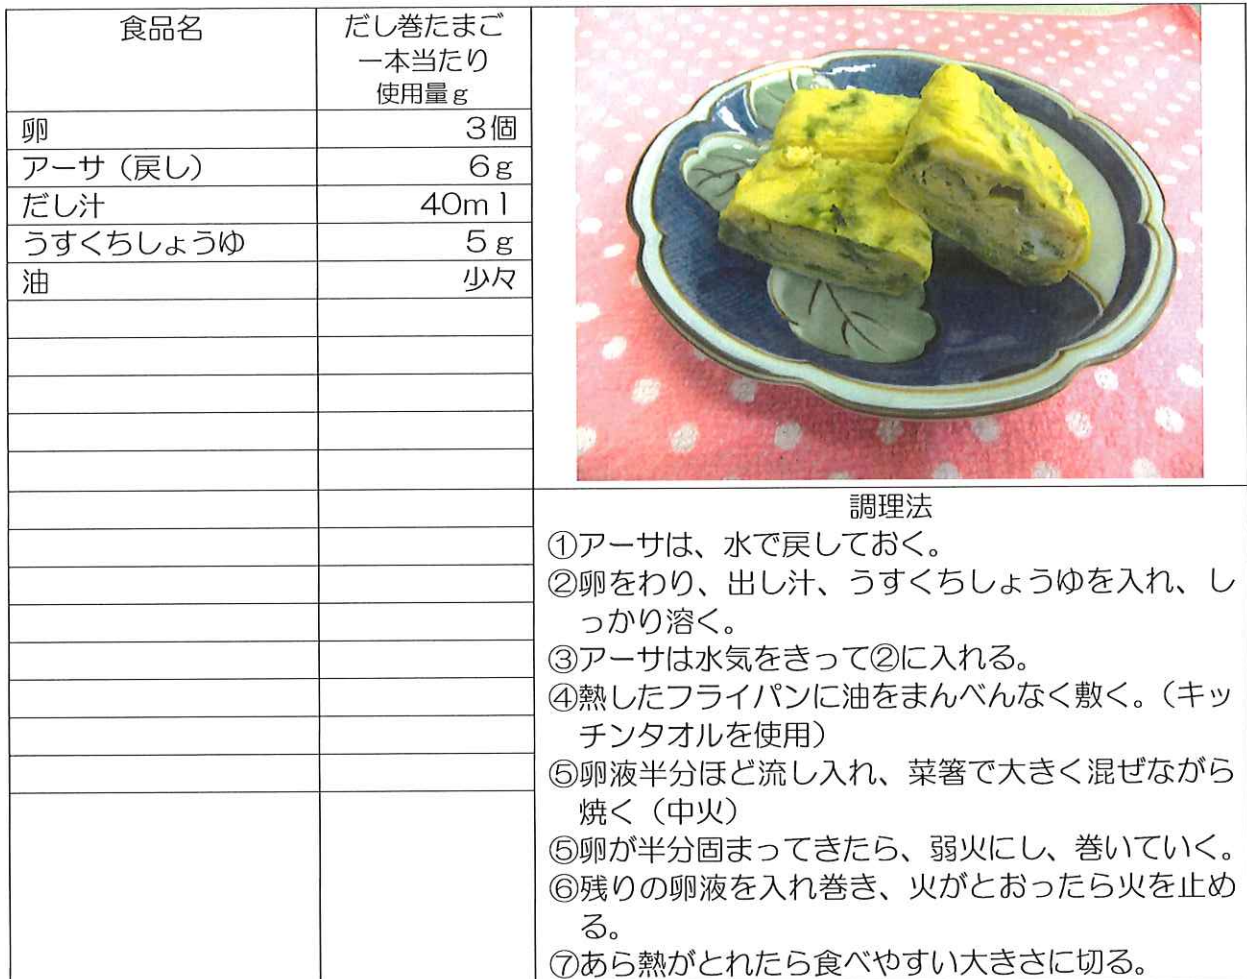 食品名
だし巻たまご
一本当たり
使用量g
卵 3個
アーサ(戻し) 6g
だし汁 40ml
うすくちしょうゆ 5g
油 少々
調理法
①アーサは、水で戻しておく。
②卵をわり、出し汁、うすくちしょうゆを入れ、し
っかり溶く。
③アーサは水気をきって②に入れる。
④熱したフライパンに油をまんべんなく敷く。(キッ
チンタオルを使用)
⑤卵液半分ほど流し入れ、菜箸で大きく混ぜながら
焼く(中火)
⑤卵が半分固まってきたら、弱火にし、巻いていく。
⑥残りの卵液を入れ巻き、火がとおったら火を止め
る。
⑦あら熱がとれたら食べやすい大きさに切る。